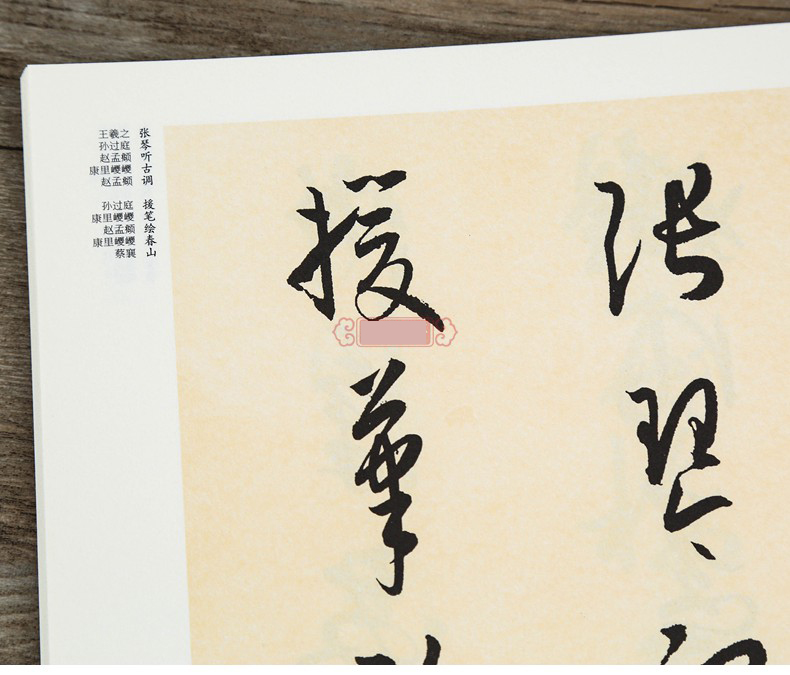 张 王羲之
琴 孙过庭
听 赵孟頫
古 康里巎巎
调 赵孟頫
援 孙过庭
笔 康里巎巎
绘 赵孟頫
春 康里巎巎
山 蔡襄
張琴
援筆